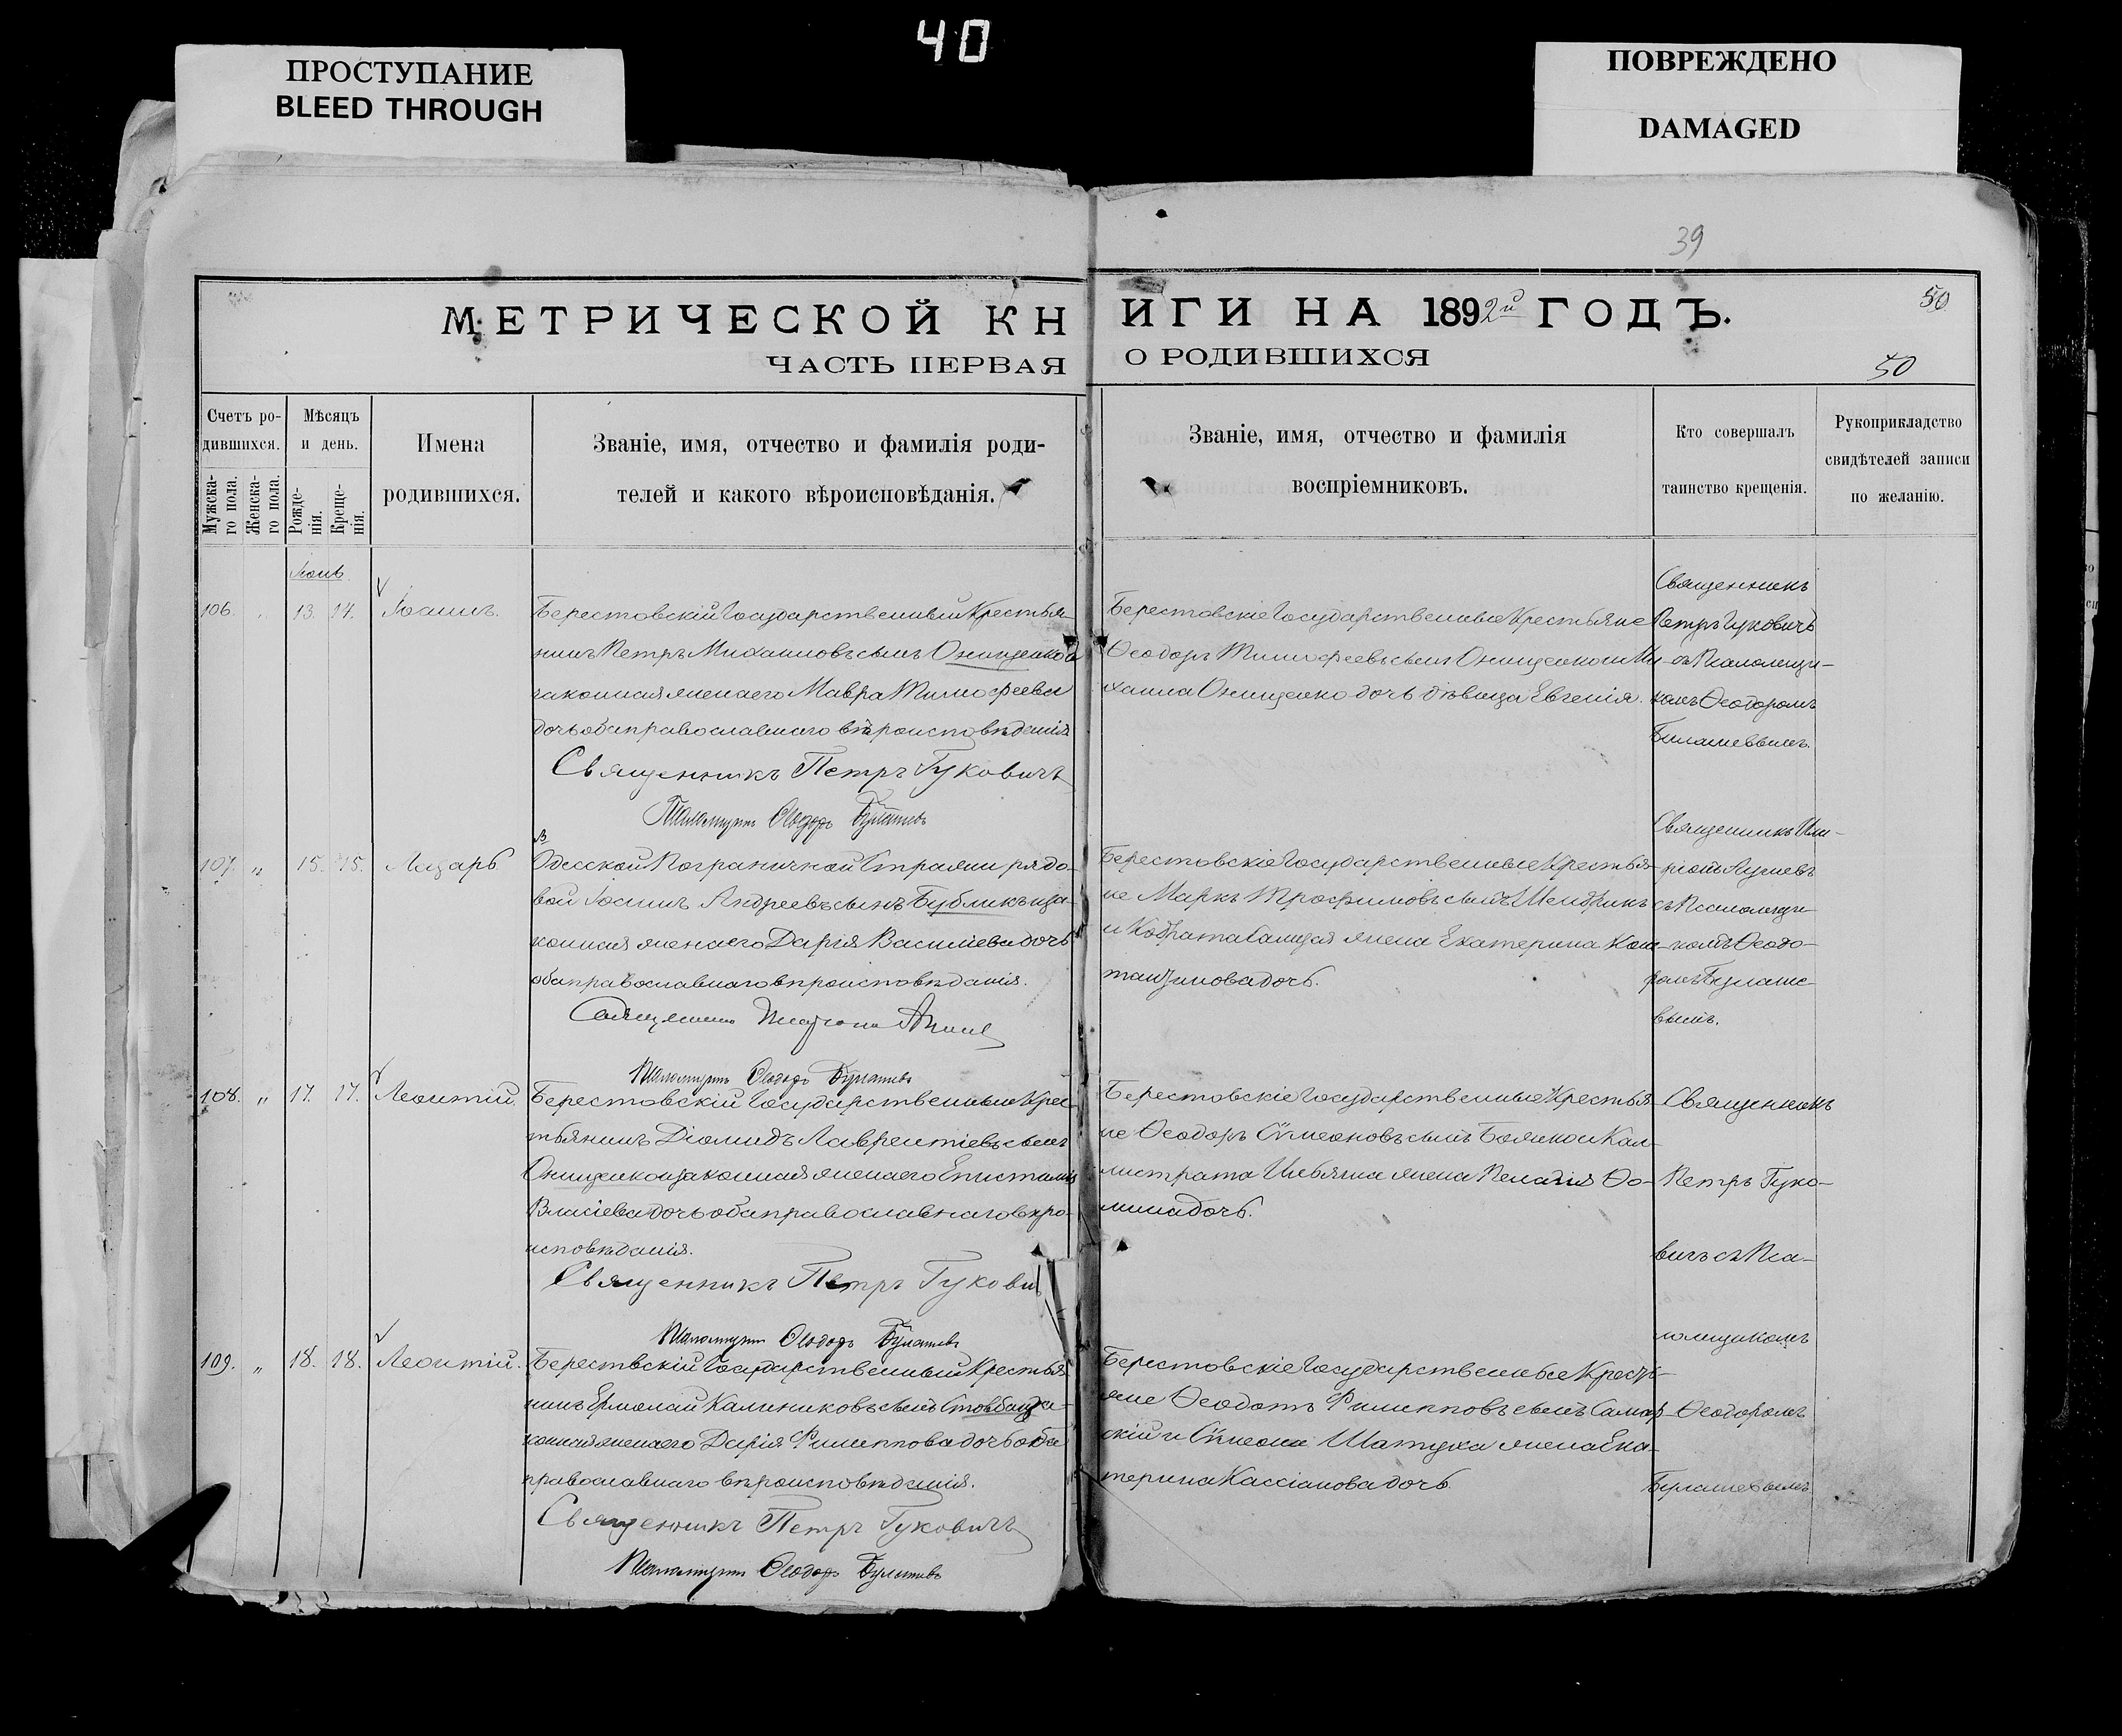 40
ПРОСТУПАНИЕ
BLEED THROUGH
ПОВРЕЖДЕНО
DAMAGED
39
МЕТРИЧЕСКОЙ КНИГИ НА 1892й ГОДЪ.
50
ЧАСТЬ ПЕРВАЯ О РОДИВШИХСЯ
50
Счетъ ро-
дившихся.
Мужска-
го пола.
Женска-
го пола.
Мѣсяцъ
и день.
Рожде-
нія.
Креще-
нія.
Имена
родившихся.
Званіе, имя, отчество и фамилія роди-
телей и какого вѣроисповѣданія.
Званіе, имя, отчество и фамилія
воспріемниковъ.
Кто совершалъ
таинство крещенія.
Рукоприкладство
свидѣтелей записи
по желанію.
106. 13. 14. Іоаннъ.
Берестовскій Государственный Крестья-
нинъ Петръ Михаиловъ сынъ Онищенко и
законная жена его Мавра Тимофеева
дочь оба православнаго вѣроисповѣданія
Священникъ Петръ Гуковичъ
Псаломщикъ Ѳеодоръ
Берестовскіе Государственные Крестьяне
Ѳеодоръ Тимофеевъ сынъ Онищенко и Ми-
хаила Онищенко дочь дѣвица Евгенія.
Священникъ
Петръ Гуковичъ
съ Псаломщи-
комъ Ѳеодоромъ
107. " 15. 15. Лазарь
Одесской Пограничной Стражи рядо-
вой Іоаннъ Андреевъ сынъ Бубликъ и за-
конная жена его Дарія Василіева дочь
оба православнаго вѣроисповѣданія.
Псаломщикъ Ѳеодоръ
Берестовскіе Государственные Крестья-
не Маркъ Трофимовъ сынъ
и жена Екатерина Кон-
стантинова дочь.
Священникъ
съ Псаломщи-
комъ Ѳеодо-
ромъ
вымъ.
108. " 17. 17. Леонтій.
Берестовскій Государственный Крес-
тьянинъ Діомидъ Лаврентіевъ сынъ
Онищенко и законная жена его Епистимія
Власіева дочь оба православнаго вѣро-
исповѣданія.
Священникъ Петръ Гукови
Псаломщикъ Ѳеодоръ
Берестовскіе Государственные Крестья-
не Ѳеодоръ Сѵмеоновъ сынъ и Кал-
листрата жена Пелагія Ѳо-
мина дочь.
Священникъ
Петръ Гуко-
вичъ съ Пса-
ломщикомъ
Ѳеодоромъ
109. " 18. 18. Леонтій.
Берествскій Государственный Крестья-
нинъ Ермолай Калиниковъ сынъ и за-
конная жена его Дарія Филиппова дочь оба
православнаго вѣроисповѣданія.
Священникъ Петръ Гуковичъ
Псаломщикъ Ѳеодоръ
Берестовскіе Государственные Кресть-
яне Ѳеодотъ Филипповъ сынъ Самар-
скій и Сѵмеона Шатуха жена Ека-
терина Кассіанова дочь.